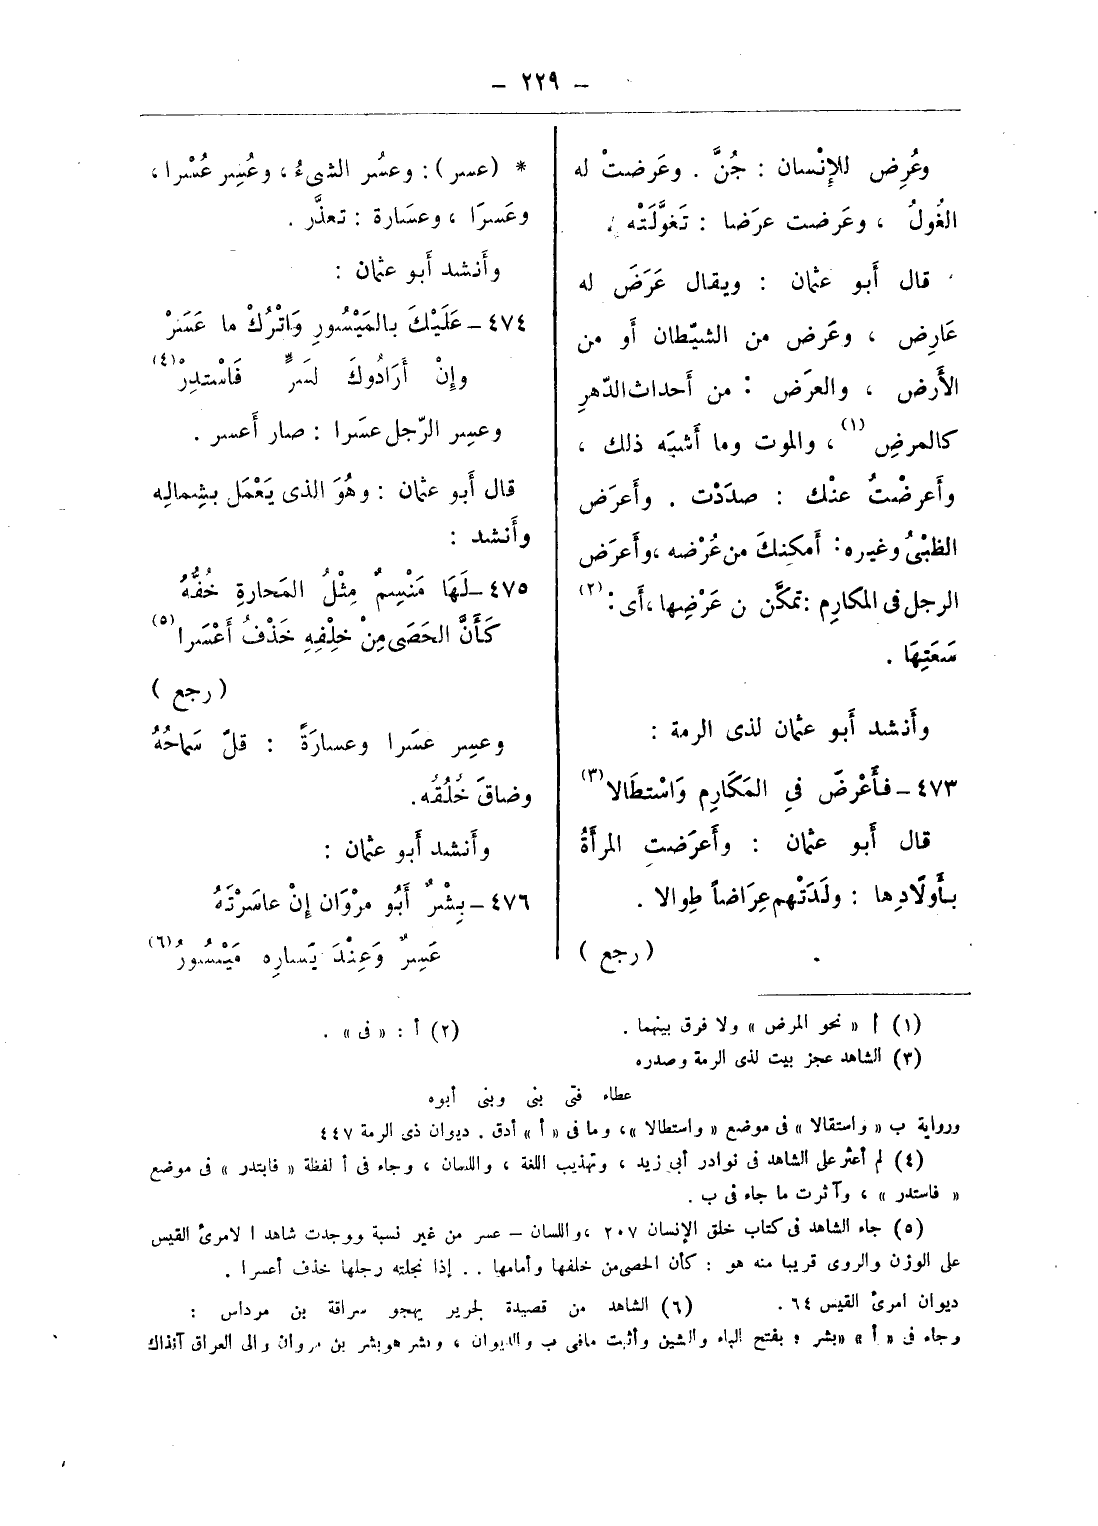 – ٢٢٩ –
وعُرِض للإنْسان : جُنَّ . وعَرضتْ له
الغُولُ ، وعَرضت عرَضا : تَغوَّلَتْه .
قال أَبو عثمان : ويقال عَرَضَ له
عَارِض ، وعَرض من الشيّطان أو من
الأَرض ، والعرَض : من أحداث الدّهرِ
كالمرضِ (١) ، والموت وما أَشبَه ذلك ،
وأَعرضْتُ عنْك : صدَدْت . وأَعرَض
الظبْىُ وغيره : أمكنكَ من عُرْضه ، وأَعرَض
الرجل فى المكارِم : تمكَّن ن عَرْضِها ، أَى : (٢)
سَعَتِهَا .
وأَنشد أَبو عثمان لذى الرمة :
٤٧٣ – فأَعْرضَ فى المَكَارِم وَاسْتطَالا (٣)
قال أَبو عثمان : وأَعرَضتِ المرأَةُ
بأَولَادِها : ولَدَتْهم عِرَاضاً طِوالا .
( رجع )
* (عسر) : وعسُر الشىءُ ، وعُسِر عُسْرا ،
وعَسرَا ، وعسَارة : تعذَّر .
وأَنشد أَبو عثمان :
٤٧٤ – عَلَيْكَ بالمَيْسُورِ وَاتْرُكْ ما عَسَرْ
وإنْ أَرَادُوكَ لسَرٍّ فَاسْتدِرْ (٤)
وعسِر الرّجل عسَرا : صار أَعسر .
قال أَبو عثمان : وهُوَ الذى يَعْمَل بشِمالِه
وأَنشد :
٤٧٥ – لَهَا مَنْسِمٌ مِثْلُ المَحارةِ خُفُّهُ
كَأَنَّ الحَصَى مِنْ خلِفِهِ خَذْفُ أَعْسَرا (٥)
( رجع )
وعسِر عسَرا وعسارَةً : قلّ سَماحُهُ
وضاقَ خُلُقُه .
وأَنشد أَبو عثمان :
٤٧٦ – بِشْرٌ أَبُو مرْوَان إنْ عاسَرْتَهُ
عَسِرٌ وَعِنْدَ يَسارِه مَيْسُورُ (٦)
(١) أ « نحو المرض » ولا فرق بينهما .
(٢) أ : « فى » .
(٣) الشاهد عجز بيت لذى الرمة وصدره
عطاء فتى بنى وبنى أبوه
ورواية ب « واستقالا » فى موضع « واستطالا » ، وما فى « أ » أدق . ديوان ذى الرمة ٤٤٧
(٤) لم أعثر على الشاهد فى نوادر أبى زيد ، وتهذيب اللغة ، واللسان ، وجاء فى أ لفظة « فابتدر » فى موضع
« فاستدر » ، وآثرت ما جاء فى ب .
(٥) جاء الشاهد فى كتاب خلق الإنسان ٢٠٧ ، واللسان – عسر من غير نسبة ووجدت شاهد ا لامرئ القيس
على الوزن والروى قريبا منه هو : كأن الحصى من خلفها وأمامها .. إذا نجلته رجلها خذف أعسرا .
ديوان امرئ القيس ٦٤ .
(٦) الشاهد من قصيدة لجرير يهجو سراقة بن مرداس :
وجاء فى « أ » «بشر » بفتح الباء والشين وأثبت مافى ب والديوان ، وبشر هو بشر بن مروان والى العراق آنذاك